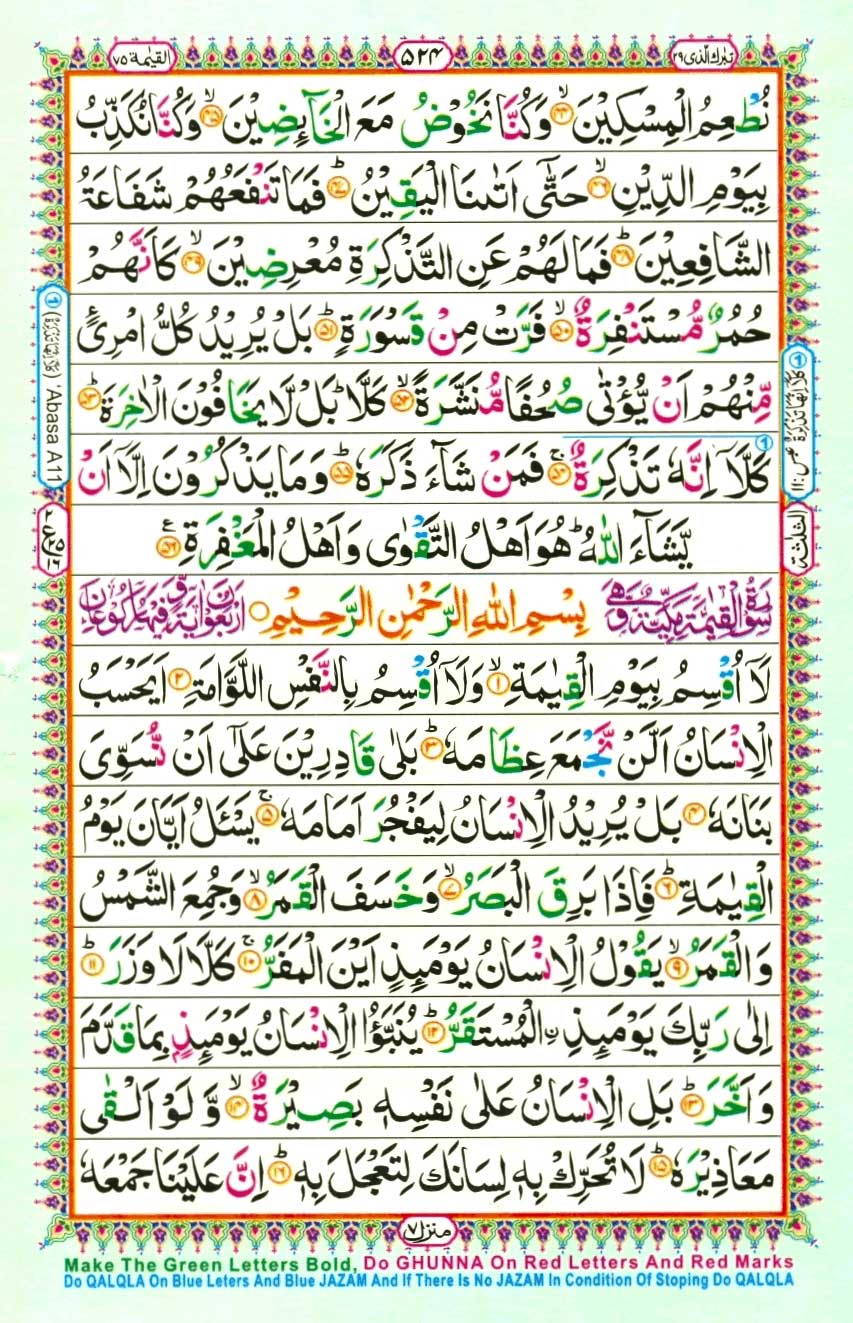 تبرك الذی ۲۹
۵۲۴
القیٰمة ۷۵
نُطْعِمُ الْمِسْكِيْنَ ۙ﴿۴۴﴾ وَكُنَّا نَخُوْضُ مَعَ الْخَآئِضِيْنَ ۙ﴿۴۵﴾ وَكُنَّا نُكَذِّبُ
بِيَوْمِ الدِّيْنِ ۙ﴿۴۶﴾ حَتّٰۤى اَتٰىنَا الْيَقِيْنُ ؕ﴿۴۷﴾ فَمَا تَنْفَعُهُمْ شَفَاعَةُ
الشَّافِعِيْنَ ؕ﴿۴۸﴾ فَمَا لَهُمْ عَنِ التَّذْكِرَةِ مُعْرِضِيْنَ ۙ﴿۴۹﴾ كَاَنَّهُمْ
حُمُرٌ مُّسْتَنْفِرَةٌ ۙ﴿۵۰﴾ فَرَّتْ مِنْ قَسْوَرَةٍ ؕ﴿۵۱﴾ بَلْ يُرِيْدُ كُلُّ امْرِئٍ
مِّنْهُمْ اَنْ يُّؤْتٰى صُحُفًا مُّنَشَّرَةً ۙ﴿۵۲﴾ كَلَّا ؕ بَلْ لَّا يَخَافُوْنَ الْاٰخِرَةَ ؕ﴿۵۳﴾
كَلَّاۤ اِنَّهٗ تَذْكِرَةٌ ۚ﴿۵۴﴾ فَمَنْ شَآءَ ذَكَرَهٗ ؕ﴿۵۵﴾ وَمَا يَذْكُرُوْنَ اِلَّاۤ اَنْ
يَّشَآءَ اللّٰهُ ؕ هُوَ اَهْلُ التَّقْوٰى وَاَهْلُ الْمَغْفِرَةِ ﴿۵۶﴾ ع
سُوْرَةُ الْقِيٰمَةِ مَكِّيَّةٌ وَّهِيَ بِسْمِ اللّٰهِ الرَّحْمٰنِ الرَّحِيْمِ ○ اَرْبَعُوْنَ اٰيَةً وَّفِيْهَا رُكُوْعَانِ
لَاۤ اُقْسِمُ بِيَوْمِ الْقِيٰمَةِ ۙ﴿۱﴾ وَلَاۤ اُقْسِمُ بِالنَّفْسِ اللَّوَّامَةِ ؕ﴿۲﴾ اَيَحْسَبُ
الْاِنْسَانُ اَلَّنْ نَّجْمَعَ عِظَامَهٗ ؕ﴿۳﴾ بَلٰى قَادِرِيْنَ عَلٰۤى اَنْ نُّسَوِّىَ
بَنَانَهٗ ﴿۴﴾ بَلْ يُرِيْدُ الْاِنْسَانُ لِيَفْجُرَ اَمَامَهٗ ۚ﴿۵﴾ يَسْئَلُ اَيَّانَ يَوْمُ
الْقِيٰمَةِ ؕ﴿۶﴾ فَاِذَا بَرِقَ الْبَصَرُ ۙ﴿۷﴾ وَخَسَفَ الْقَمَرُ ۙ﴿۸﴾ وَجُمِعَ الشَّمْسُ
وَالْقَمَرُ ۙ﴿۹﴾ يَقُوْلُ الْاِنْسَانُ يَوْمَئِذٍ اَيْنَ الْمَفَرُّ ۚ﴿۱۰﴾ كَلَّا لَا وَزَرَ ؕ﴿۱۱﴾
اِلٰى رَبِّكَ يَوْمَئِذِ ۨالْمُسْتَقَرُّ ؕ﴿۱۲﴾ يُنَبَّؤُا الْاِنْسَانُ يَوْمَئِذٍۭ بِمَا قَدَّمَ
وَاَخَّرَ ؕ﴿۱۳﴾ بَلِ الْاِنْسَانُ عَلٰى نَفْسِهٖ بَصِيْرَةٌ ۙ﴿۱۴﴾ وَّلَوْ اَلْقٰى
مَعَاذِيْرَهٗ ؕ﴿۱۵﴾ لَا تُحَرِّكْ بِهٖ لِسَانَكَ لِتَعْجَلَ بِهٖ ؕ﴿۱۶﴾ اِنَّ عَلَيْنَا جَمْعَهٗ
۱ كَلَّاۤ اِنَّهَا تَذْكِرَةٌ عبس: ۱۱
الثلثة
۱ (كَلَّاۤ اِنَّهَا تَذْكِرَةٌ) 'Abasa A11
منزل ۷
Make The Green Letters Bold, Do GHUNNA On Red Letters And Red Marks
Do QALQLA On Blue Leters And Blue JAZAM And If There Is No JAZAM In Condition Of Stoping Do QALQLA